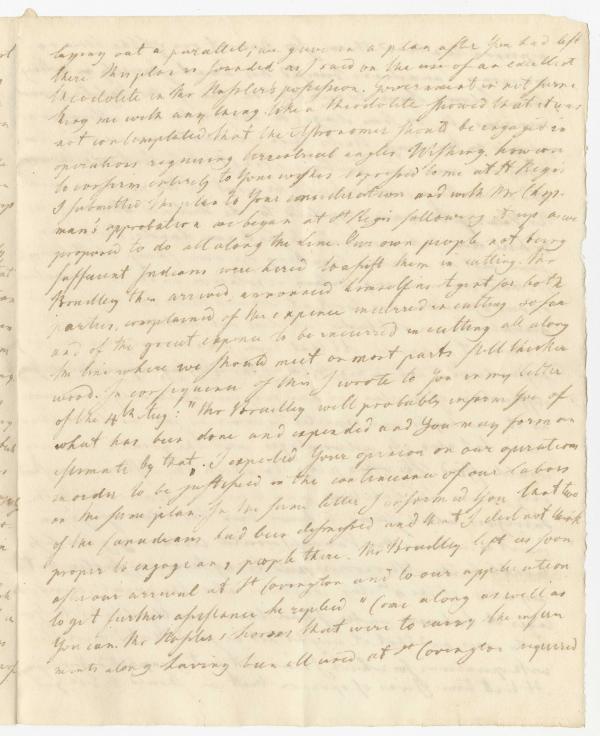 laying out a parallel; we gave in a plan after you had left
there this plan is founded as I said on the use of an excellent
theodolite in Mr Hassler's possession. Government in not furni
shing me with any thing like a theodolite showed that it was
not contemplated that the Astronomer should be engaged in
operations requiring terrestrial angles. Wishing however
to conform entirely to your wishes expressed to me at St Regis
I submitted this plan to your consideration and with Mr Chip-
man's approbation we began at St Regis following it up as we
proposed to do all along the Line. Our own people not being
sufficient Indians were hired to assist them in cutting. Mr
Bradley then arrived, announced himself as Agent for both
parties, complained of the expence incurred in cutting so far
and of the great expence to be incurred in cutting all along
the line where we should meet on most parts still thicker
wood. In consequence of this I wrote to you in my letter
of the 4th Aug: "Mr Bradley will probably inform you of
what has been done and expended and you may form an
estimate by that. I expected your opinion on our operations
in order to be justified in the continuance of our labors
on the same plan. In the same letter I informed you that two
of the Canadians had been dismissed and that I did not think
proper to engage any people there. Mr Bradley left as soon
as our arrival at Ft Covington and to our application
to get further assistance he replied "Come along as well as
you can. Mr Hassler's horses that were to carry the instru
ments along having been all used at Ft Covington required